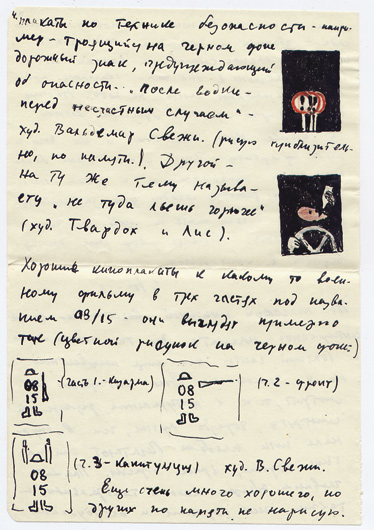 плакаты по технике безопасности - напри-
мер - троящийся на черном фоне
дорожный знак, предупреждающий
об опасности. "После водки -
перед несчастным случаем" -
худ. Вальдемар Свежи. (рисую приблизитель-
но, по памяти.). Другой -
на ту же тему называ-
ется "не туда льешь горючее"
(худ. Твардох и Лис).
Хорошие киноплакаты к какому то воен-
ному фильму в трех частях под назва-
нием 08/15 - они выглядят примерно
так (цветной рисунок на черном фоне)
08
15
(часть 1. - казарма)
08
15
(ч. 2 - фронт)
08
15
(ч. 3 - капитуляция) худ. В. Свежи.
Еще очень много хорошего, но
других по памяти не нарисую.